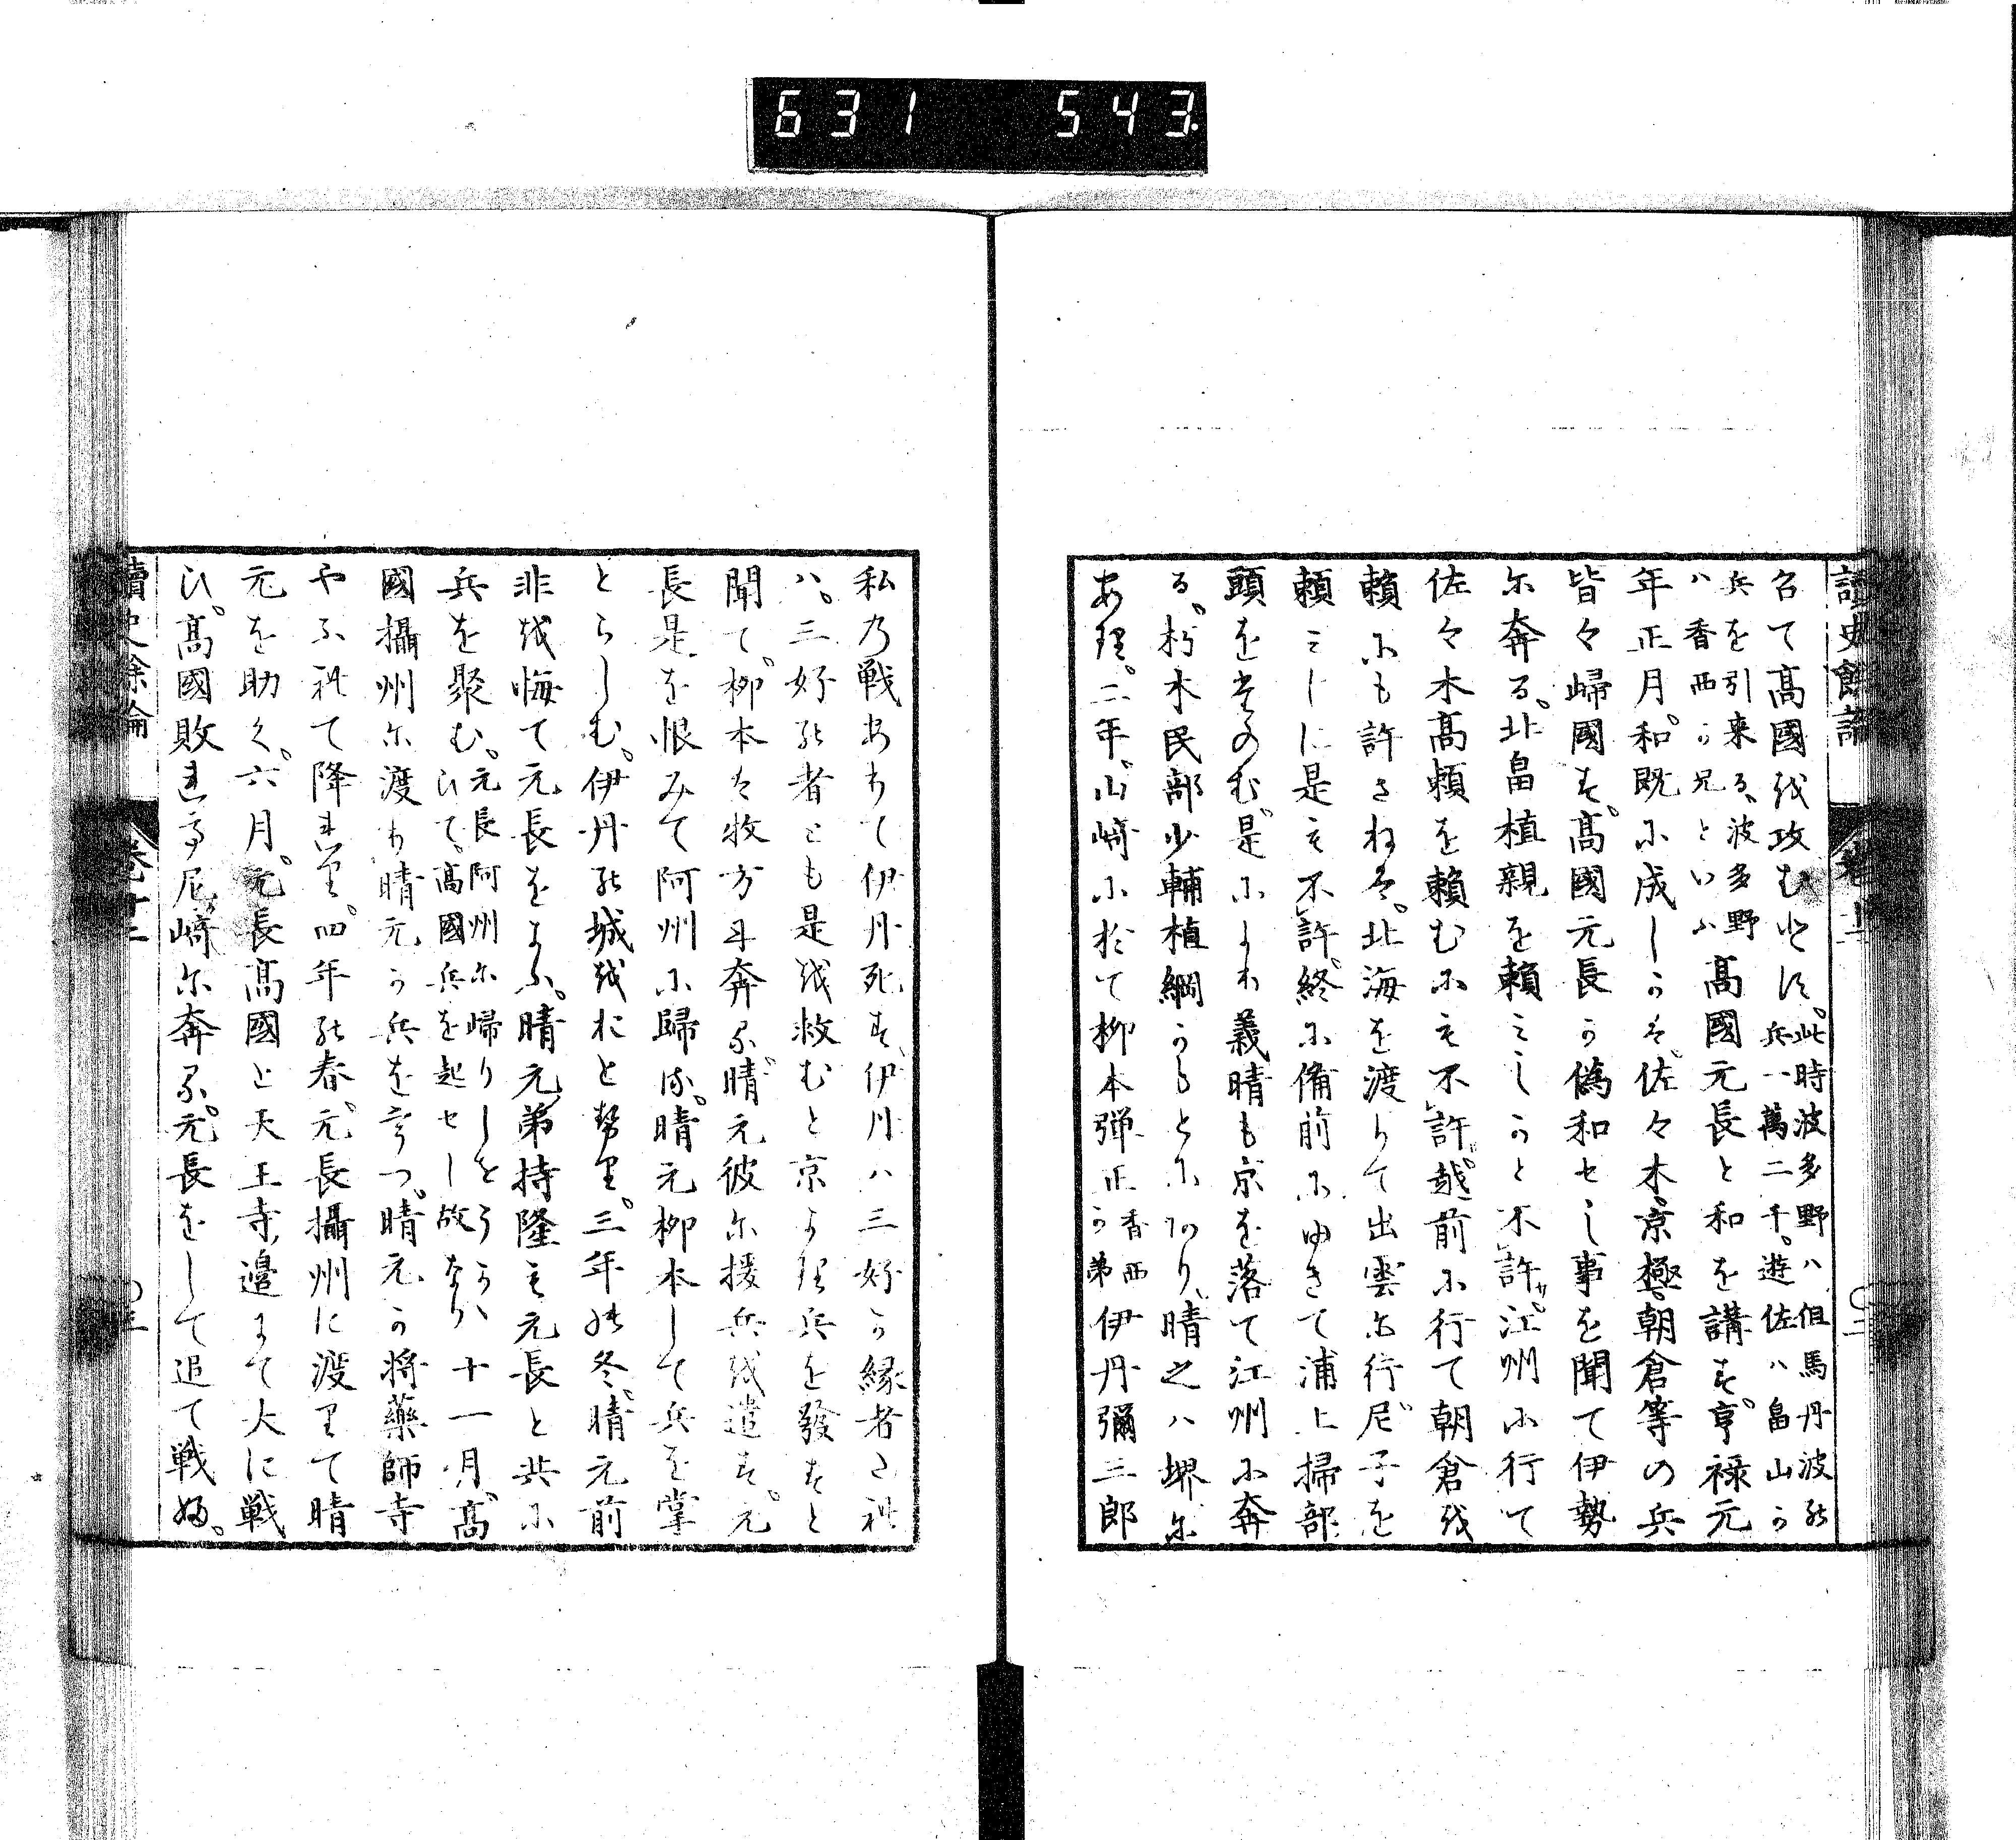 631 543
讀史餘論
召て高國を攻むとす。此時波多野ハ但馬丹波の
兵一萬二千。遊佐ハ畠山か
兵を引来る、波多野
ハ香西か兄といふ
高國元長と和を講す。享禄元
年正月。和既に成しかは、佐々木京極朝倉等の兵
皆々歸國す。高國元長か偽和せし事を聞て伊勢
に奔る。北畠植親を頼みしかと不許。江州に行て
佐々木高頼を頼むにも不許。越前に行て朝倉を
頼にも許されねは。北海を渡りて出雲に行尼子を
頼みしに是も不許。終に備前にゆきて浦上掃部
頭をたのむ。是により義晴も京を落て江州に奔
る。朽木民部少輔植綱かもとにあり、晴之ハ堺に
あり。二年。山崎に於て柳本弾正香西か弟伊丹彌三郎
私乃戦ありて伊丹死す、伊丹ハ三好か縁者され
ハ。三好の者とも是を救むと京より兵を發すと
聞て。柳本は牧方に奔る。晴元彼に援兵を遣す。元
長是を恨みて阿州に歸る。晴元柳本して兵を掌
とらしむ。伊丹の城をおと勢り。三年の冬。晴元前
非を悔て元長をよふ。晴元弟持隆も元長と共に
兵を聚む。元長阿州に歸りしをうかハ
ひて、高國兵を起せし故なり
十一月。高
國攝州に渡り晴元か兵をうつ。晴元か将藥師寺
やふれて降まいり。四年の春。元長攝州に渡りて晴
元を助く。六月。元長高國と天王寺邉にて大に戦
ひ。高國敗まけ尼崎に奔る。元長をして追て戦ふ。
讀史餘論 卷十二